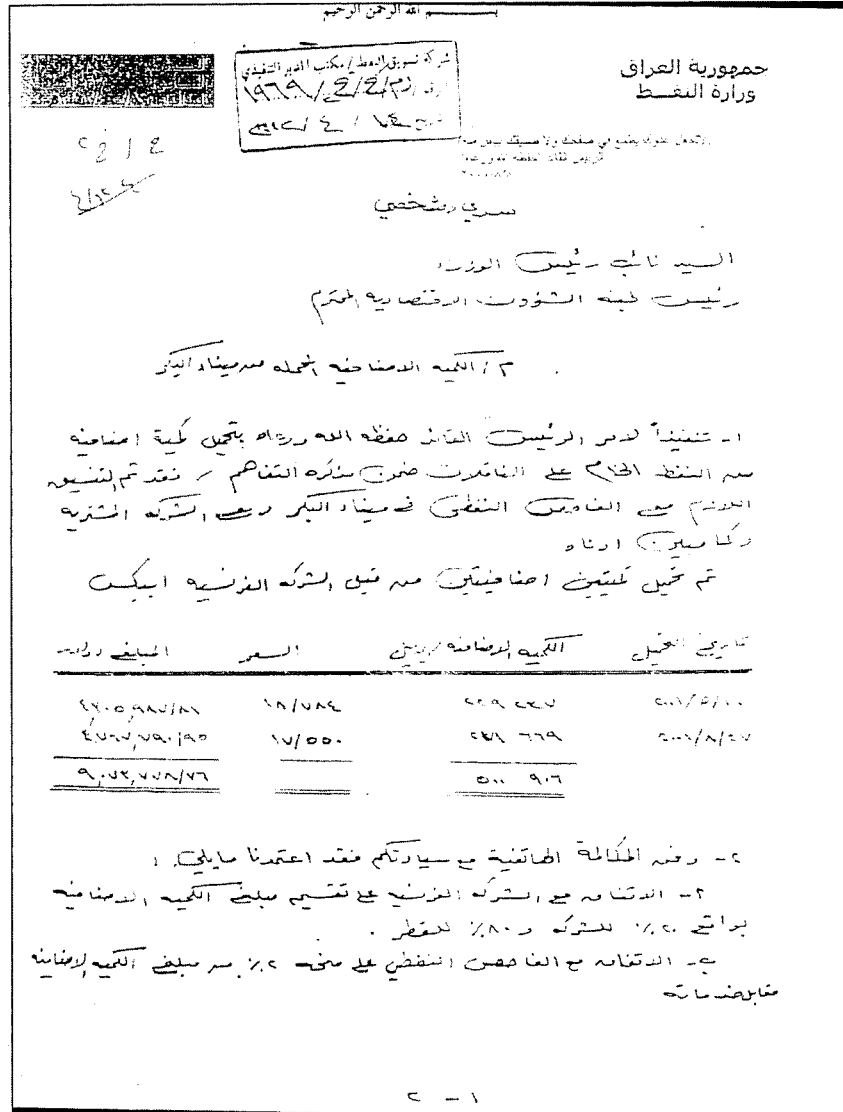 بسم الله الرحمن الرحيم
جمهورية العراق
وزارة النفط
شركة تسويق النفط / مكتب المدير التنفيذي
سري وشخصي
السيد نائب رئيس الوزراء
رئيس لجنة الشؤون الاقتصادية المحترم
م / الكمية الاضافيه المحمله من ميناء البكر
١- تنفيذاً لامر الرئيس القائد حفظه الله ورعاه بتحميل كمية اضافيه
من النفط الخام على الناقلات ضمن مذكره التفاهم / فقد تم التنسيق
اللازم مع الفاحص النفطي في ميناء البكر ومع الشركه المشتريه
وكما مبين ادناه
تم تحميل كميتين اضافيتين من قبل الشركه الفرنسيه ايبكس
تاريخ التحميل الكميه الاضافيه / برميل السعر المبلغ دولار
١٨/٧٨٤ ٢٢٩ ٢٣٧
٢٠٠١/٨/٢٧ ٢٧١ ٦٦٩ ١٧/٥٥٠ ٤,٧٦٧,٧٩٠/٩٥
٥٠٠ ٩٠٦ ٩,٠٧٣,٧٧٨/٧٦
٢- وفق المكالمة الهاتفية مع سيادتكم فقد اعتمدنا مايلي :
أ- الاتفاق مع الشركه الفرنسيه على تقسيم مبلغ الكميه الاضافيه
بواقع ٢٠٪ للشركه و ٨٠٪ للقطر .
ب- الاتفاق مع الفاحص النفطي على منحه ٢٪ من مبلغ الكميه الاضافيه
مقابل خدماته
١ - ٢